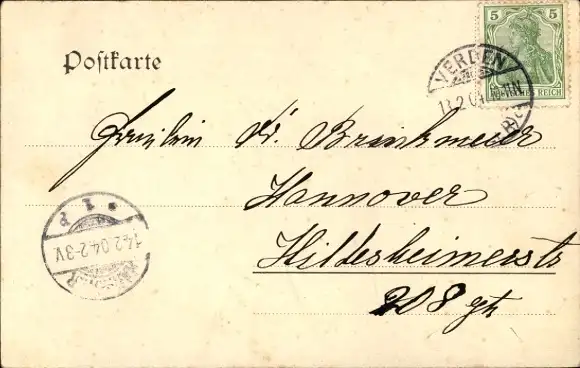 5 5
DEUTSCHES REICH
Poſtkarte
VERDEN
13.2.04
Fräulein D. Brinkmeier
Hannover
Hildesheimerstr
208
HANNOVER
14.2.04.2-3V.
* 1 P